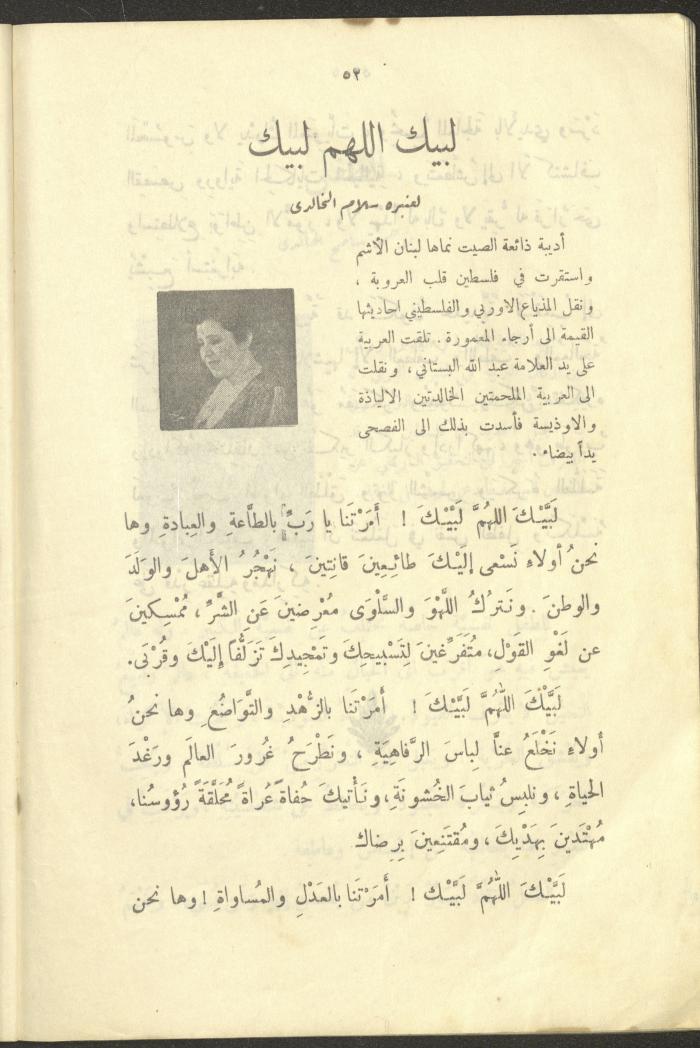 ٥٣
لبيك اللهم لبيك
لعنبره سلام الخالدى
أديبة ذائعة الصيت نماها لبنان الأشم
واستقرت في فلسطين قلب العروبة ،
ونقل المذياع الاوربي والفلسطيني احاديثها
القيمة الى أرجاء المعمورة . تلقت العربية
على يد العلامة عبد الله البستاني ، ونقلت
الى العربية الملحمتين الخالدتين الالياذة
والاوذيسة فأسدت بذلك الى الفصحى
يداً بيضاء .
لَبَّيْكَ اللهُمَّ لَبَّيْكَ ! أَمَرْتَنا يا رَبِّ بالطَّاعةِ والعِبادةِ وها
نحنُ أولاءِ نَسْعى إليْكَ طائِعِينَ قانِتِينَ ، نَهْجُرُ الأَهلَ والوَلَدَ
والوطنَ . ونَترُكُ اللَّهْوَ والسَّلْوَى مُعْرِضينَ عَنِ الشَّرِّ ، مُمْسِكينَ
عن لَغْوِ القَوْلِ، مُتَفَرِّغينَ لِتَسْبيحِكَ وتَمْجِيدِكَ تَزَلُّفاً إِلَيْكَ وقُرْبَى.
لَبَّيْكَ اللّهُمَّ لَبَّيْكَ ! أَمَرْتَنا بالزُّهْدِ والتَّوَاضُعِ وها نحنُ
أولاءِ نَخْلَعُ عنَّا لِباسَ الرَّفاهِيَةِ ، ونَطْرَحُ غُرورَ العالَمِ ورَغْدَ
الحياةِ ، ونلبِسُ ثيابَ الخُشونَةِ، ونَأْتيكَ حُفاةً عُراةً مُحَلَّقَةً رُؤوسُنا،
مُهْتَدينَ بِهَدْيِكَ ، ومُقتَنِعينَ بِرِضاك
لَبَّيْكَ اللّهُمَّ لَبَّيْك ! أَمَرْتَنا بالعَدْلِ والمُساواةِ ! وها نحن